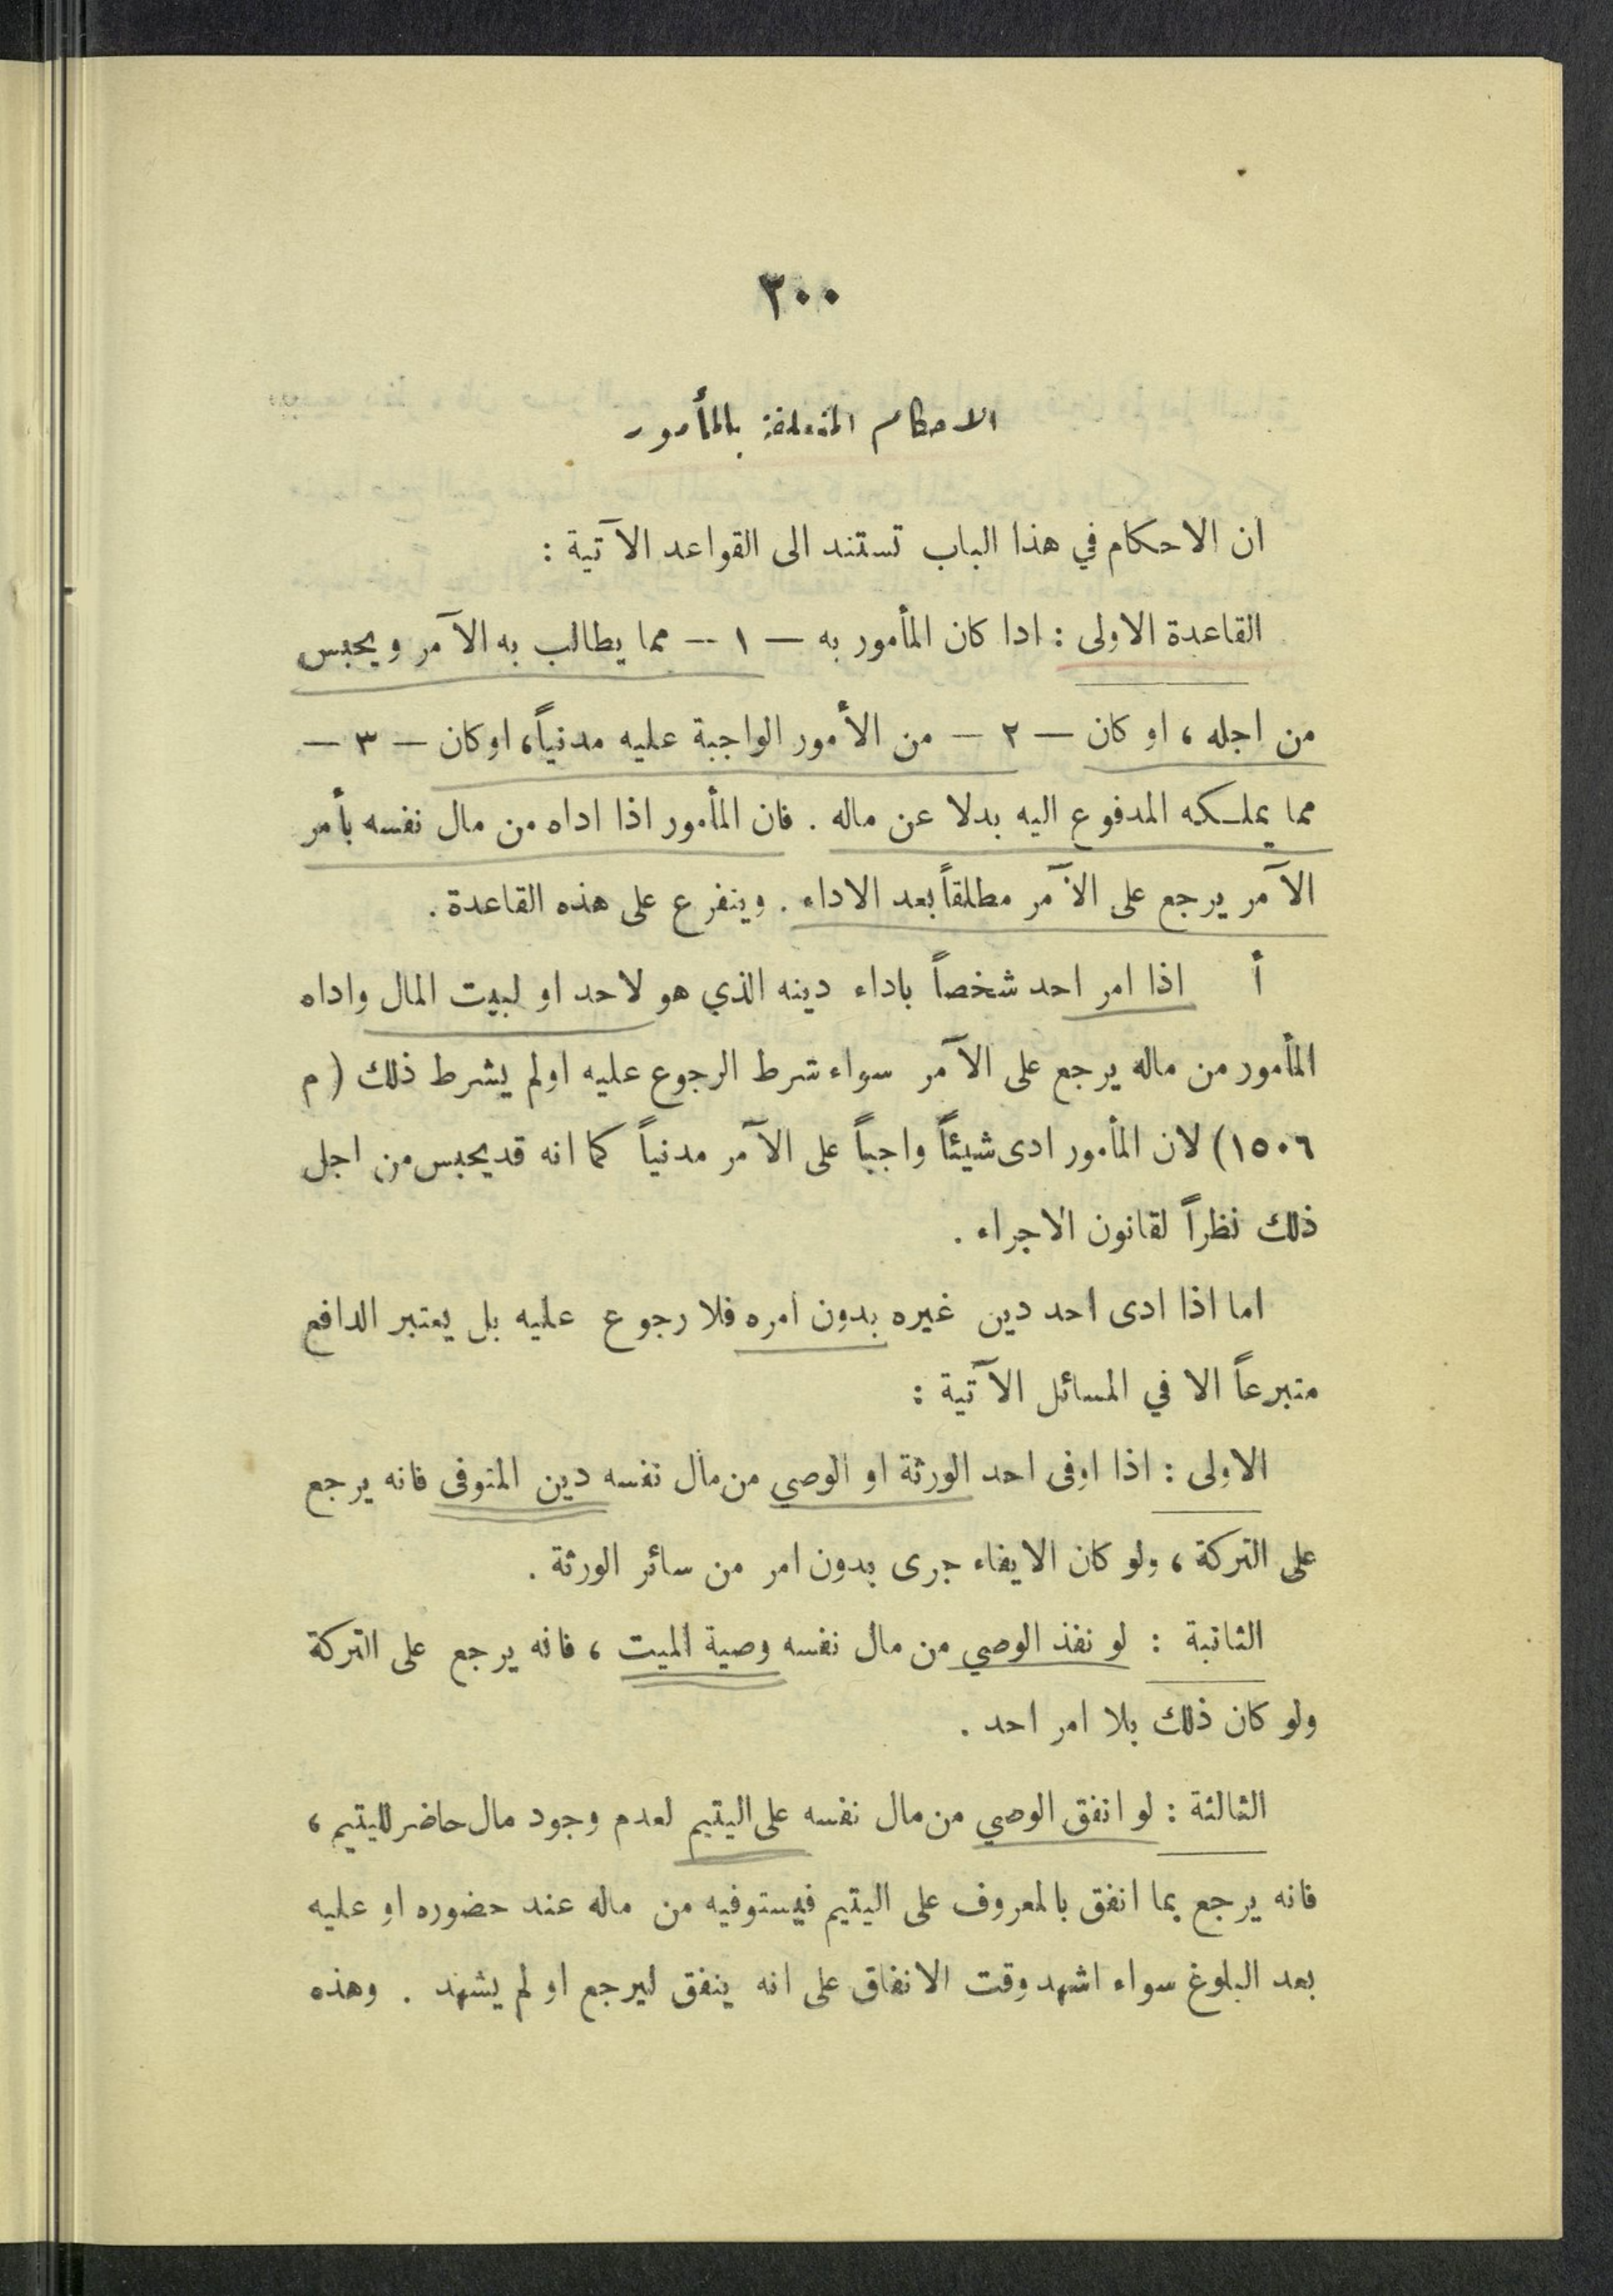 ٣٠٠
الاحكام المتعلقة بالمأمور
ان الاحكام في هذا الباب تستند الى القواعد الآتية :
القاعدة الاولى : اذا كان المأمور به — ١ — مما يطالب به الآمر ويحبس
من اجله ، او كان — ٢ — من الأمور الواجبة عليه مدنياً، او كان — ٣ —
مما يملكه المدفوع اليه بدلا عن ماله . فان المأمور اذا اداه من مال نفسه بأمر
الآمر يرجع على الآمر مطلقاً بعد الاداء . ويتفرع على هذه القاعدة .
أ اذا امر احد شخصاً باداء دينه الذي هو لاحد او لبيت المال واداه
المأمور من ماله يرجع على الآمر سواء شرط الرجوع عليه اولم يشرط ذلك ( م
١٥٠٦) لان المأمور ادى شيئاً واجباً على الآمر مدنياً كما انه قد يحبس من اجل
ذلك نظراً لقانون الاجراء .
اما اذا ادى احد دين غيره بدون امره فلا رجوع عليه بل يعتبر الدافع
متبرعاً الا في المسائل الآتية :
الاولى : اذا اوفى احد الورثة او الوصي من مال نفسه دين المتوفى فانه يرجع
على التركة ، ولو كان الايفاء جرى بدون امر من سائر الورثة .
الثانية : لو نفذ الوصي من مال نفسه وصية الميت ، فانه يرجع على التركة
ولو كان ذلك بلا امر احد .
الثالثة : لو انفق الوصي من مال نفسه على اليتيم لعدم وجود مال حاضر لليتيم ،
فانه يرجع بما انفق بالمعروف على اليتيم فيستوفيه من ماله عند حضوره او عليه
بعد البلوغ سواء اشهد وقت الانفاق على انه ينفق ليرجع او لم يشهد . وهذه